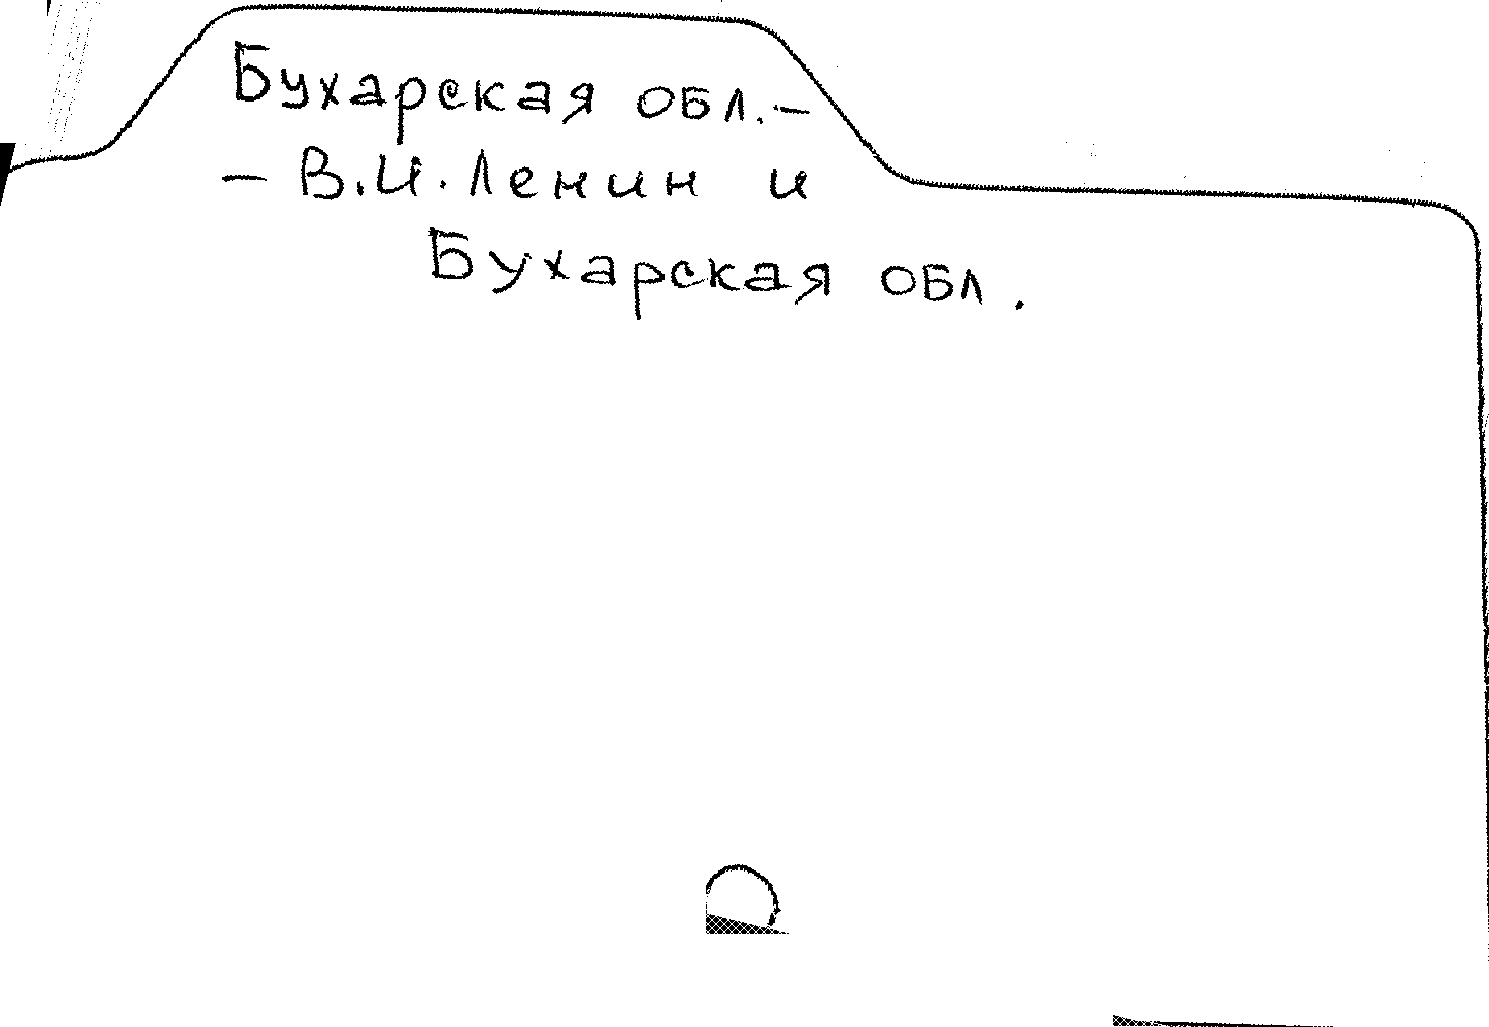 Бухарская обл.–
– В.И.Ленин и
Бухарская обл.